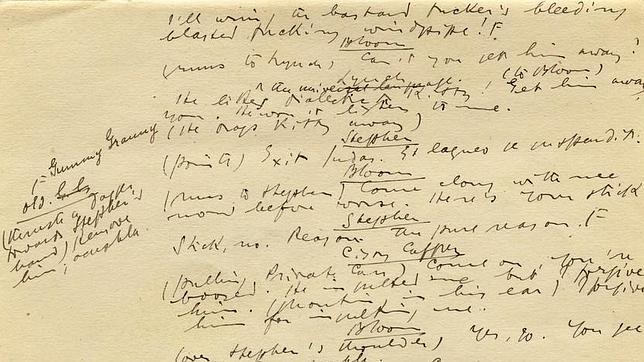 I'll wring the bastard fucker's bleeding
blasted fucking windpipe! Γ
Bloom
(runs to Lynch) Can't you get him away?
Lynch
He likes dialectic, the universal language. Kitty! (to Bloom) Get him away,
you. He won't listen to me.
(He drags Kitty away)
Stephen
(points) Exit Judas. Et laqueo se suspendit.
Bloom
(runs to Stephen) Come along with me
now before worse. Here's your stick
Stephen
Stick, no. Reason. This pure reason. Γ
Cissy Caffrey
(pulling Private Carr) Come on, you're
boosed. He insulted me but I forgive
him. (shouting in his ear) I forgive
him for insulting me.
Bloom
(over Stephen's shoulder) Yes, go. You see
Γ Gummy Granny
old
(thrusts a dagger
towards Stephen's
hand) Remove
him, acushla.